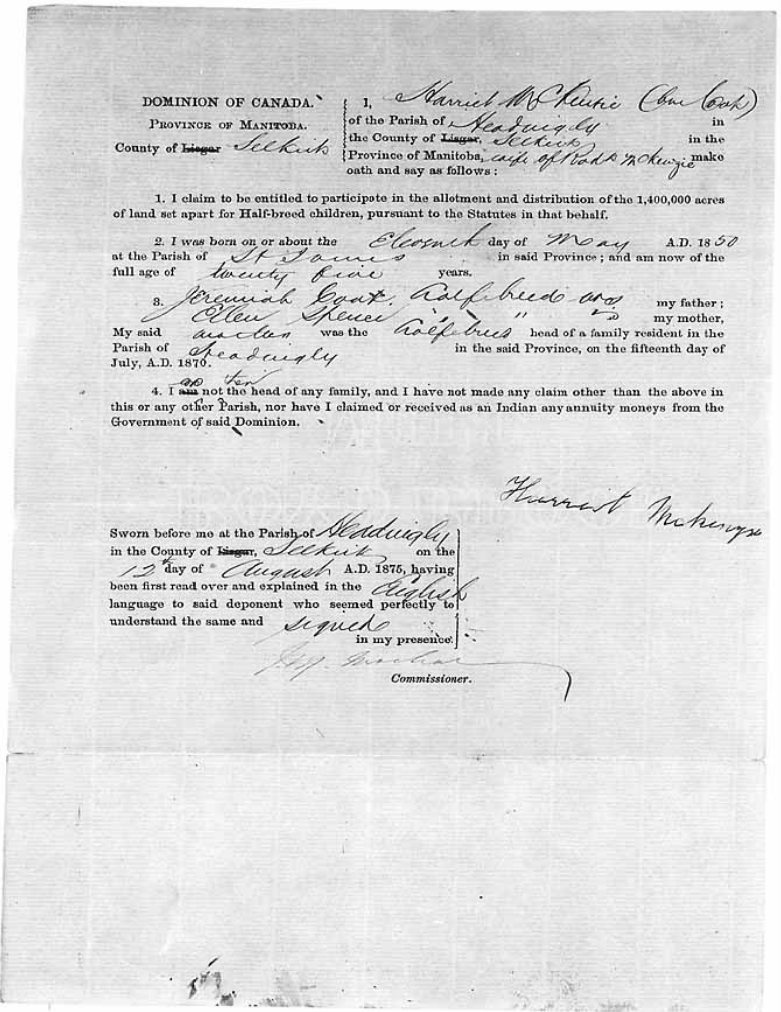 DOMINION OF CANADA.
PROVINCE OF MANITOBA.
County of Lisgar Selkirk
I, Harriet McKenzie (born Cook)
of the Parish of Headingly in
the County of Lisgar, Selkirk in the
Province of Manitoba, wife of Rodk McKenzie make
oath and say as follows:
1. I claim to be entitled to participate in the allotment and distribution of the 1,400,000 acres
of land set apart for Half-breed children, pursuant to the Statutes in that behalf.
2. I was born on or about the Eleventh day of May A.D. 1850
at the Parish of St James in said Province; and am now of the
full age of twenty five years.
3. Jeremiah Cook, Halfbreed was my father;
Ellen Spencer " " my mother,
My said mother was the Halfbreed head of a family resident in the
Parish of Headingly in the said Province, on the fifteenth day of
July, A.D. 1870.
4. I am not the head of any family, and I have not made any claim other than the above in
this or any other Parish, nor have I claimed or received as an Indian any annuity moneys from the
Government of said Dominion.
Harriet McKenzie
Sworn before me at the Parish of Headingly
in the County of Lisgar, Selkirk on the
12th day of August A.D. 1875, having
been first read over and explained in the English
language to said deponent who seemed perfectly to
understand the same and signed
in my presence.
Commissioner.